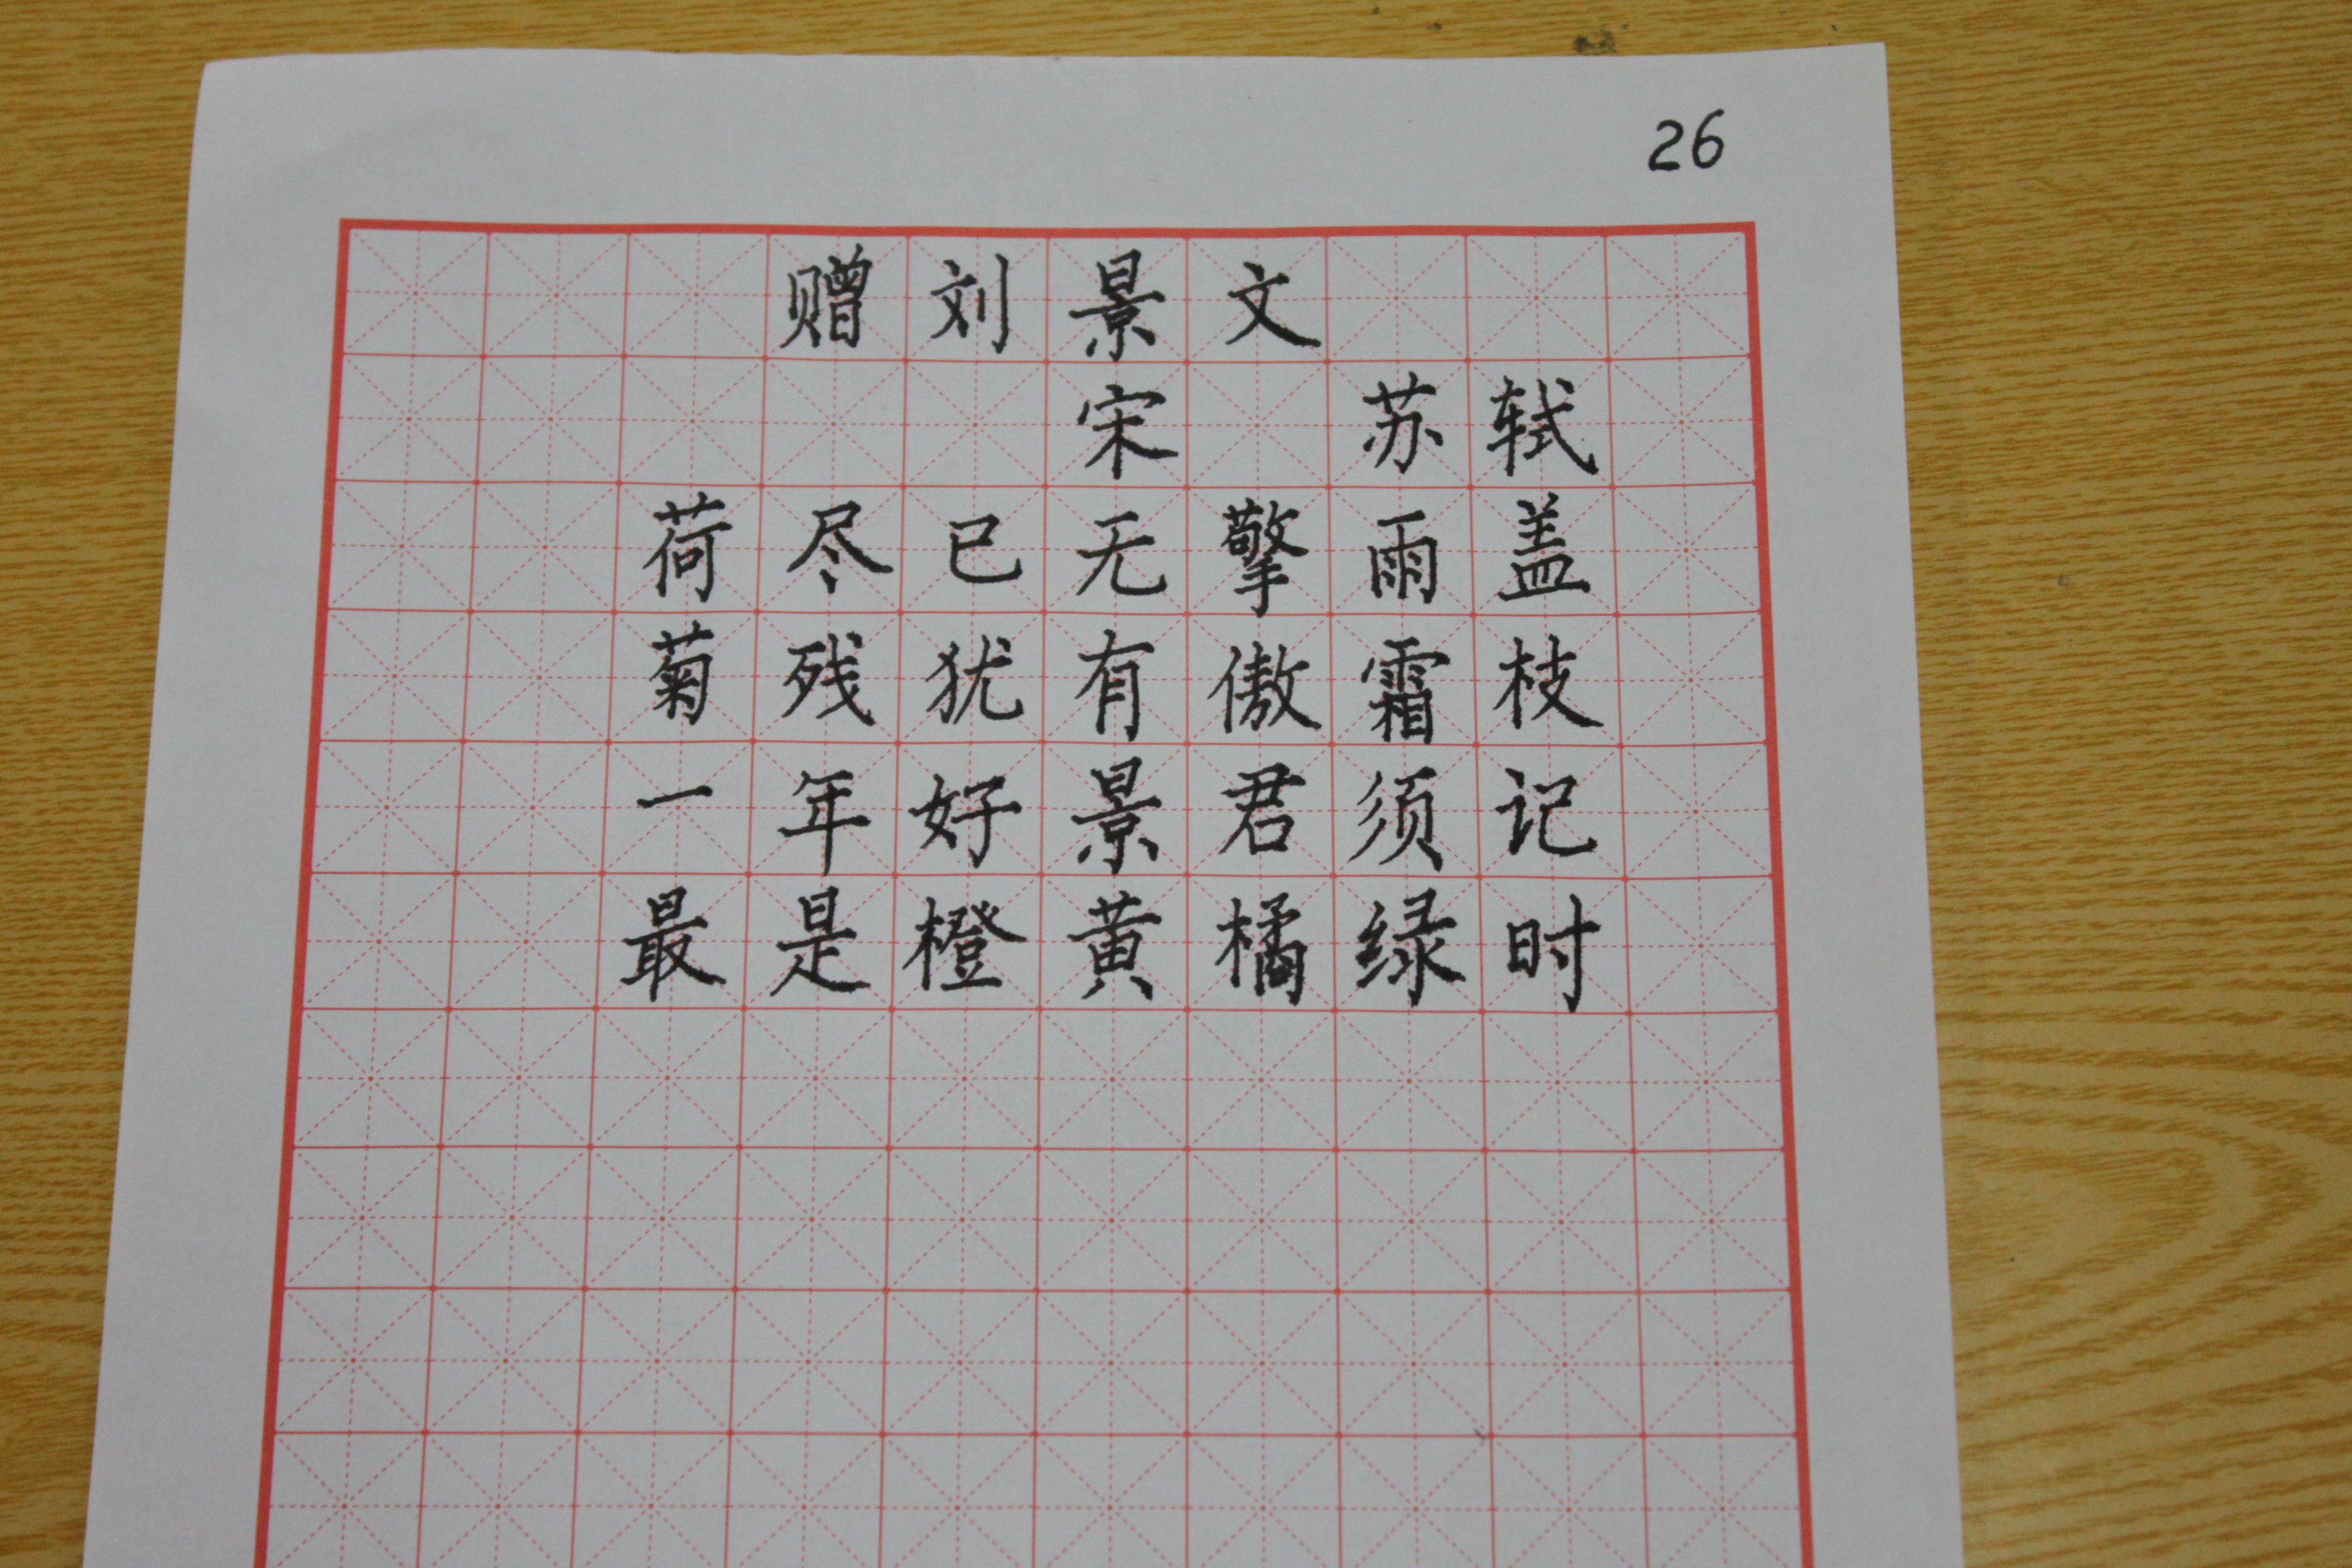 26
赠刘景文
宋 苏轼
荷尽已无擎雨盖
菊残犹有傲霜枝
一年好景君须记
最是橙黄橘绿时